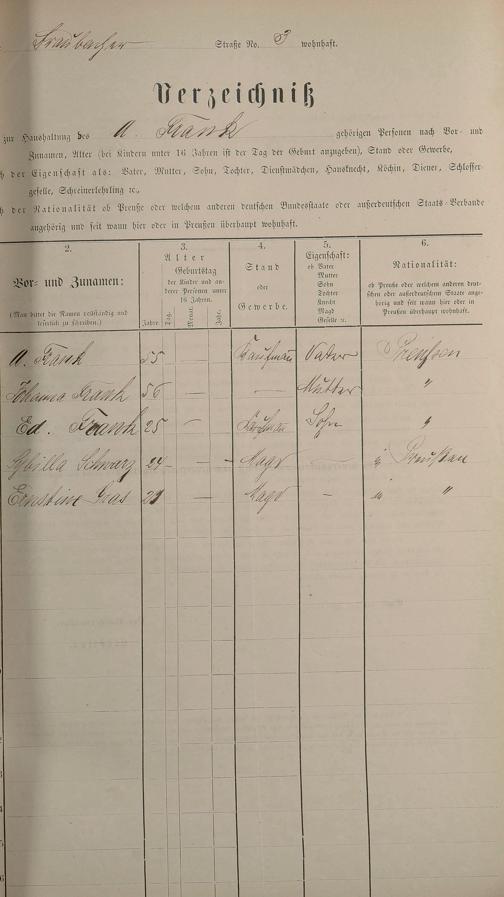 Braubacher Straße No. 3 wohnhaft.
Verzeichniß
zur Haushaltung des A. Frank gehörigen Personen nach Vor- und
Zunamen, Alter (bei Kindern unter 16 Jahren ist der Tag der Geburt anzugeben), Stand oder Gewerbe,
der Eigenschaft als: Vater, Mutter, Sohn, Tochter, Dienstmädchen, Hausknecht, Köchin, Diener, Schlosser-
geselle, Schreinerlehrling ꝛc.,
der Nationalität ob Preuße oder welchem anderen deutschen Bundesstaate oder außerdeutschen Staats-Verbande
angehörig und seit wann hier oder in Preußen überhaupt wohnhaft.
2. 3. 4. 5. 6.
Vor- und Zunamen:
(Man bittet die Namen vollständig und
leserlich zu schreiben.)
Alter
Geburtstag
der Kinder und an-
derer Personen unter
16 Jahren.
Jahre. Tag. Monat. Jahr.
Stand
oder
Gewerbe.
Eigenschaft:
ob Vater
Mutter
Sohn
Tochter
Knecht
Magd
Geselle ꝛc.
Nationalität:
ob Preuße oder welchem anderen deut-
schen oder außerdeutschen Staate ange-
hörig und seit wann hier oder in
Preußen überhaupt wohnhaft.
A. Frank 55 Kaufmau Vater Preussen
Johanna Frank 56 — Mutter "
Ed. Frank 25 — Kaufmau Sohn "
Sybilla Schwarz 24 — — — Magd — "
Ernstine 21 — — Magd — " "